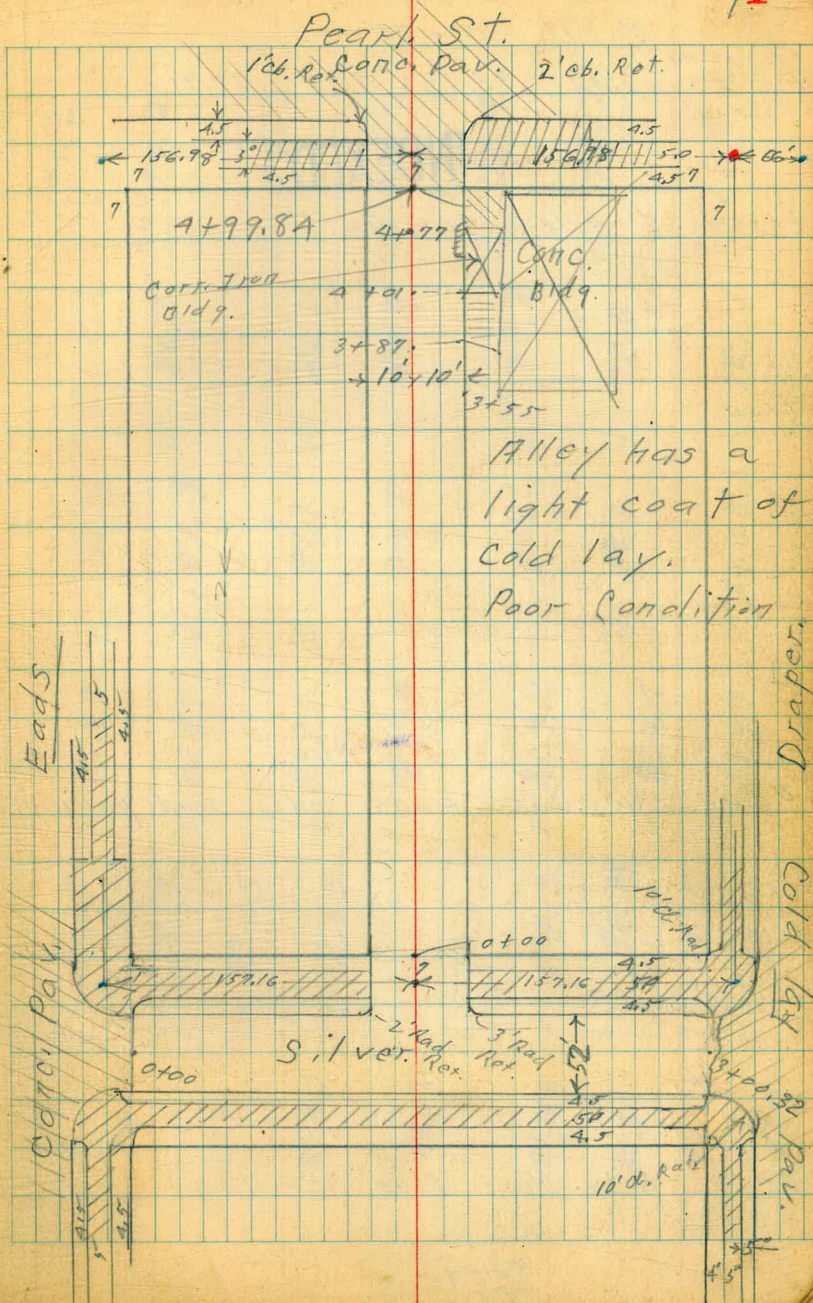 Pearl St.
1'cb. Ret. Conc. Pav. 2'cb. Ret.
4.5 4.5
156.98 5.0 156.98 5.0 66'
4.5 4.5
7 7 7 7 7
4+99.84 4+77
Corr. Iron Bldg.
Conc. Bldg.
4+01.
3+87.
10' 10'
3+55
Alley has a
light coat of
Cold lay.
Poor Condition
Eads
4.5 5 4.5
Draper.
Conc. Pav.
Cold lay Pav.
10'd. Rad.
0+00
7
157.16 157.16
4.5
5.0
4.5
2' Rad Ret.
3' Rad Ret.
0+00 Silver. 52'
3+00.32
4.5
5.0
4.5
10'd. Rad.
4.5 5 4.5
4' 5'